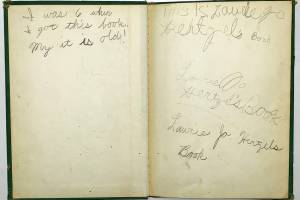 I was 6 when
I got this book.
My it is old!
This is Laurie Jo
Hertzel's Book
Laurie Jo
Hertzel's Book
Laurie Jo Hertzels
Book